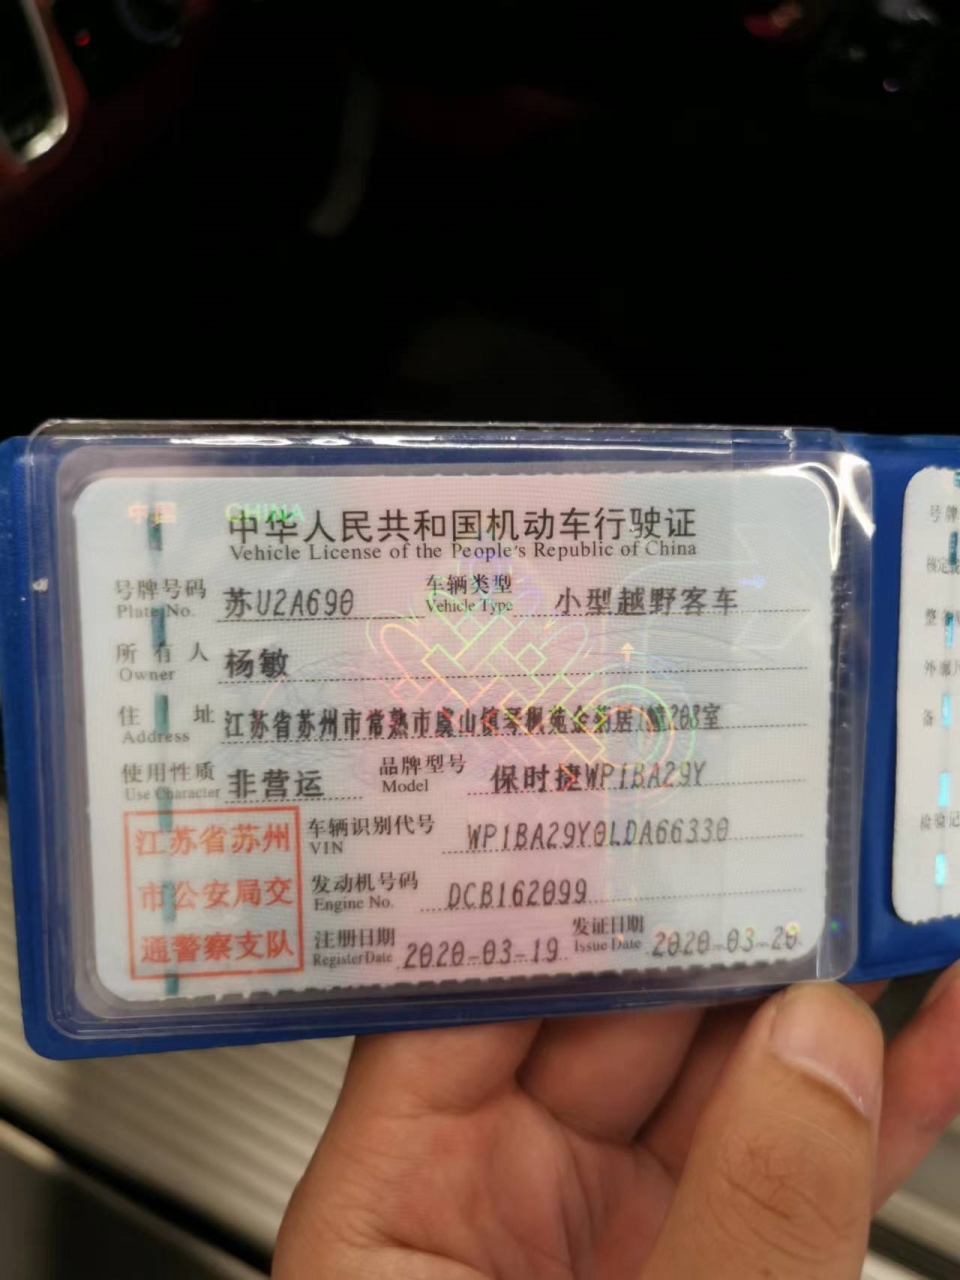 中国 CHINA
中华人民共和国机动车行驶证
Vehicle License of the People's Republic of China
号牌号码 苏U2A690 车辆类型 小型越野客车
Plate No. Vehicle Type
所有人 杨敏
Owner
住址 江苏省苏州市常熟市虞山镇琴枫苑金菊居1幢203室
Address
使用性质 非营运 品牌型号 保时捷WP1BA29Y
Use Character Model
江苏省苏州
市公安局交
通警察支队
车辆识别代号 WP1BA29Y0LDA66330
VIN
发动机号码 DCB162099
Engine No.
注册日期 2020-03-19 发证日期 2020-03-20
Register Date Issue Date
号牌
核定
整
外廓
备
检验记